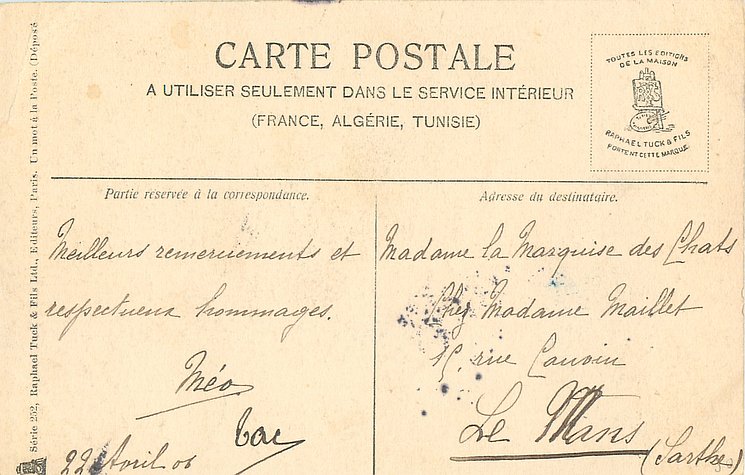 CARTE POSTALE
A UTILISER SEULEMENT DANS LE SERVICE INTÉRIEUR
(FRANCE, ALGÉRIE, TUNISIE)
TOUTES LES EDITIONS
DE LA MAISON
RAPHAEL TUCK & FILS
PORTENT CETTE MARQUE
Série 252, Raphael Tuck & Fils Ltd., Editeurs, Paris. Un mot à la Poste. (Déposé
Partie réservée à la correspondance.
Meilleurs remerciements et
respectueux hommages.
Méo
22 Avril 06
Adresse du destinataire.
Madame la Marquise des Chats
Chez Madame Maillet
15, rue Cauvin
Le Mans
(Sarthe)